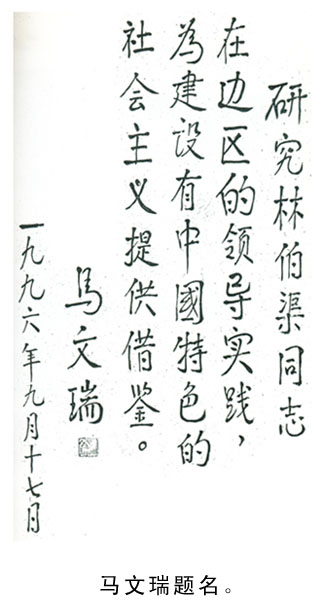 研究林伯渠同志
在边区的领导实践，
為建设有中國特色的
社会主义提供借鉴。
马文瑞
一九九六年九月十七日
马文瑞题名。